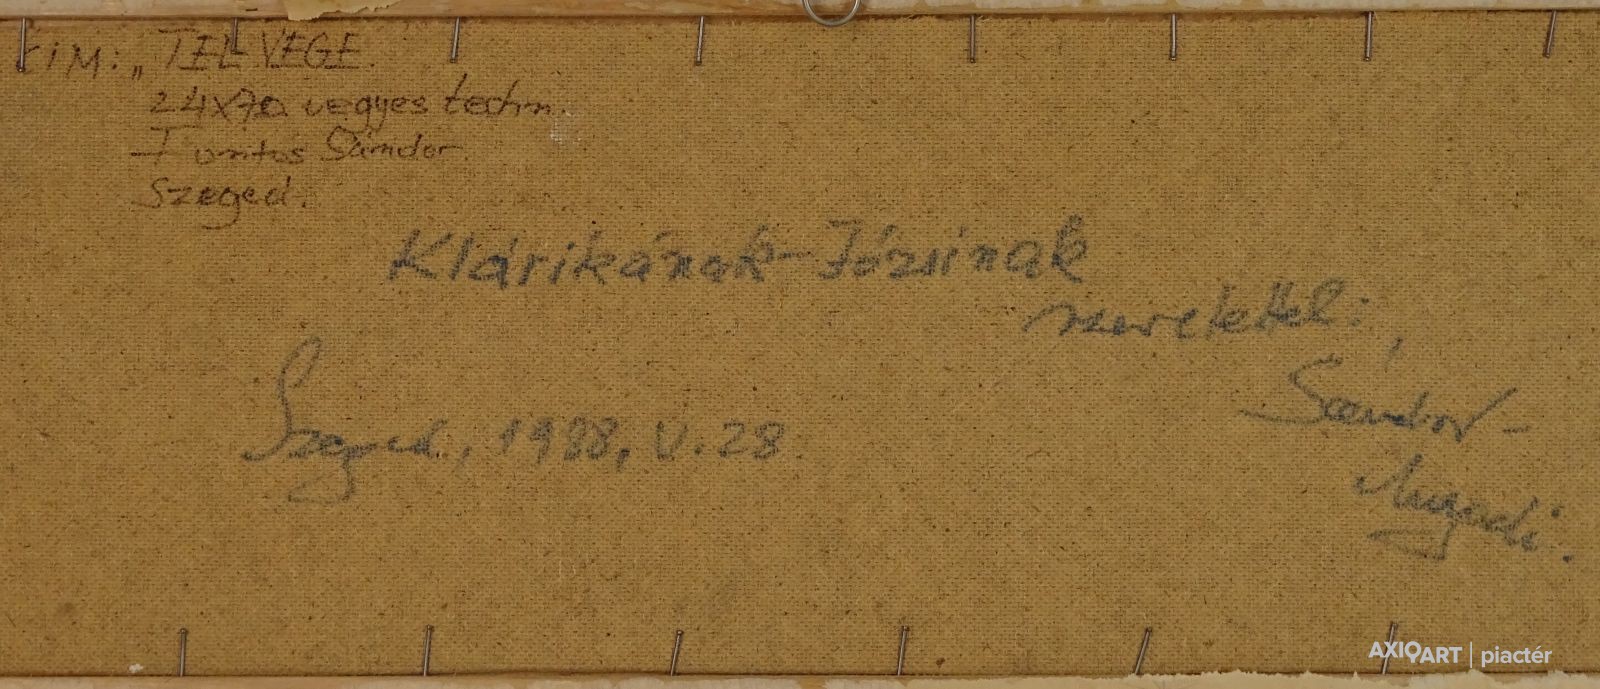 CÍM: „TÉL VÉGE.
24x70 vegyes techn.
Fontos Sándor
Szeged.
Klárikának-Józsinak
szeretettel:
Sándor-
Szeged, 1988, V. 28
AXIOART | piactér